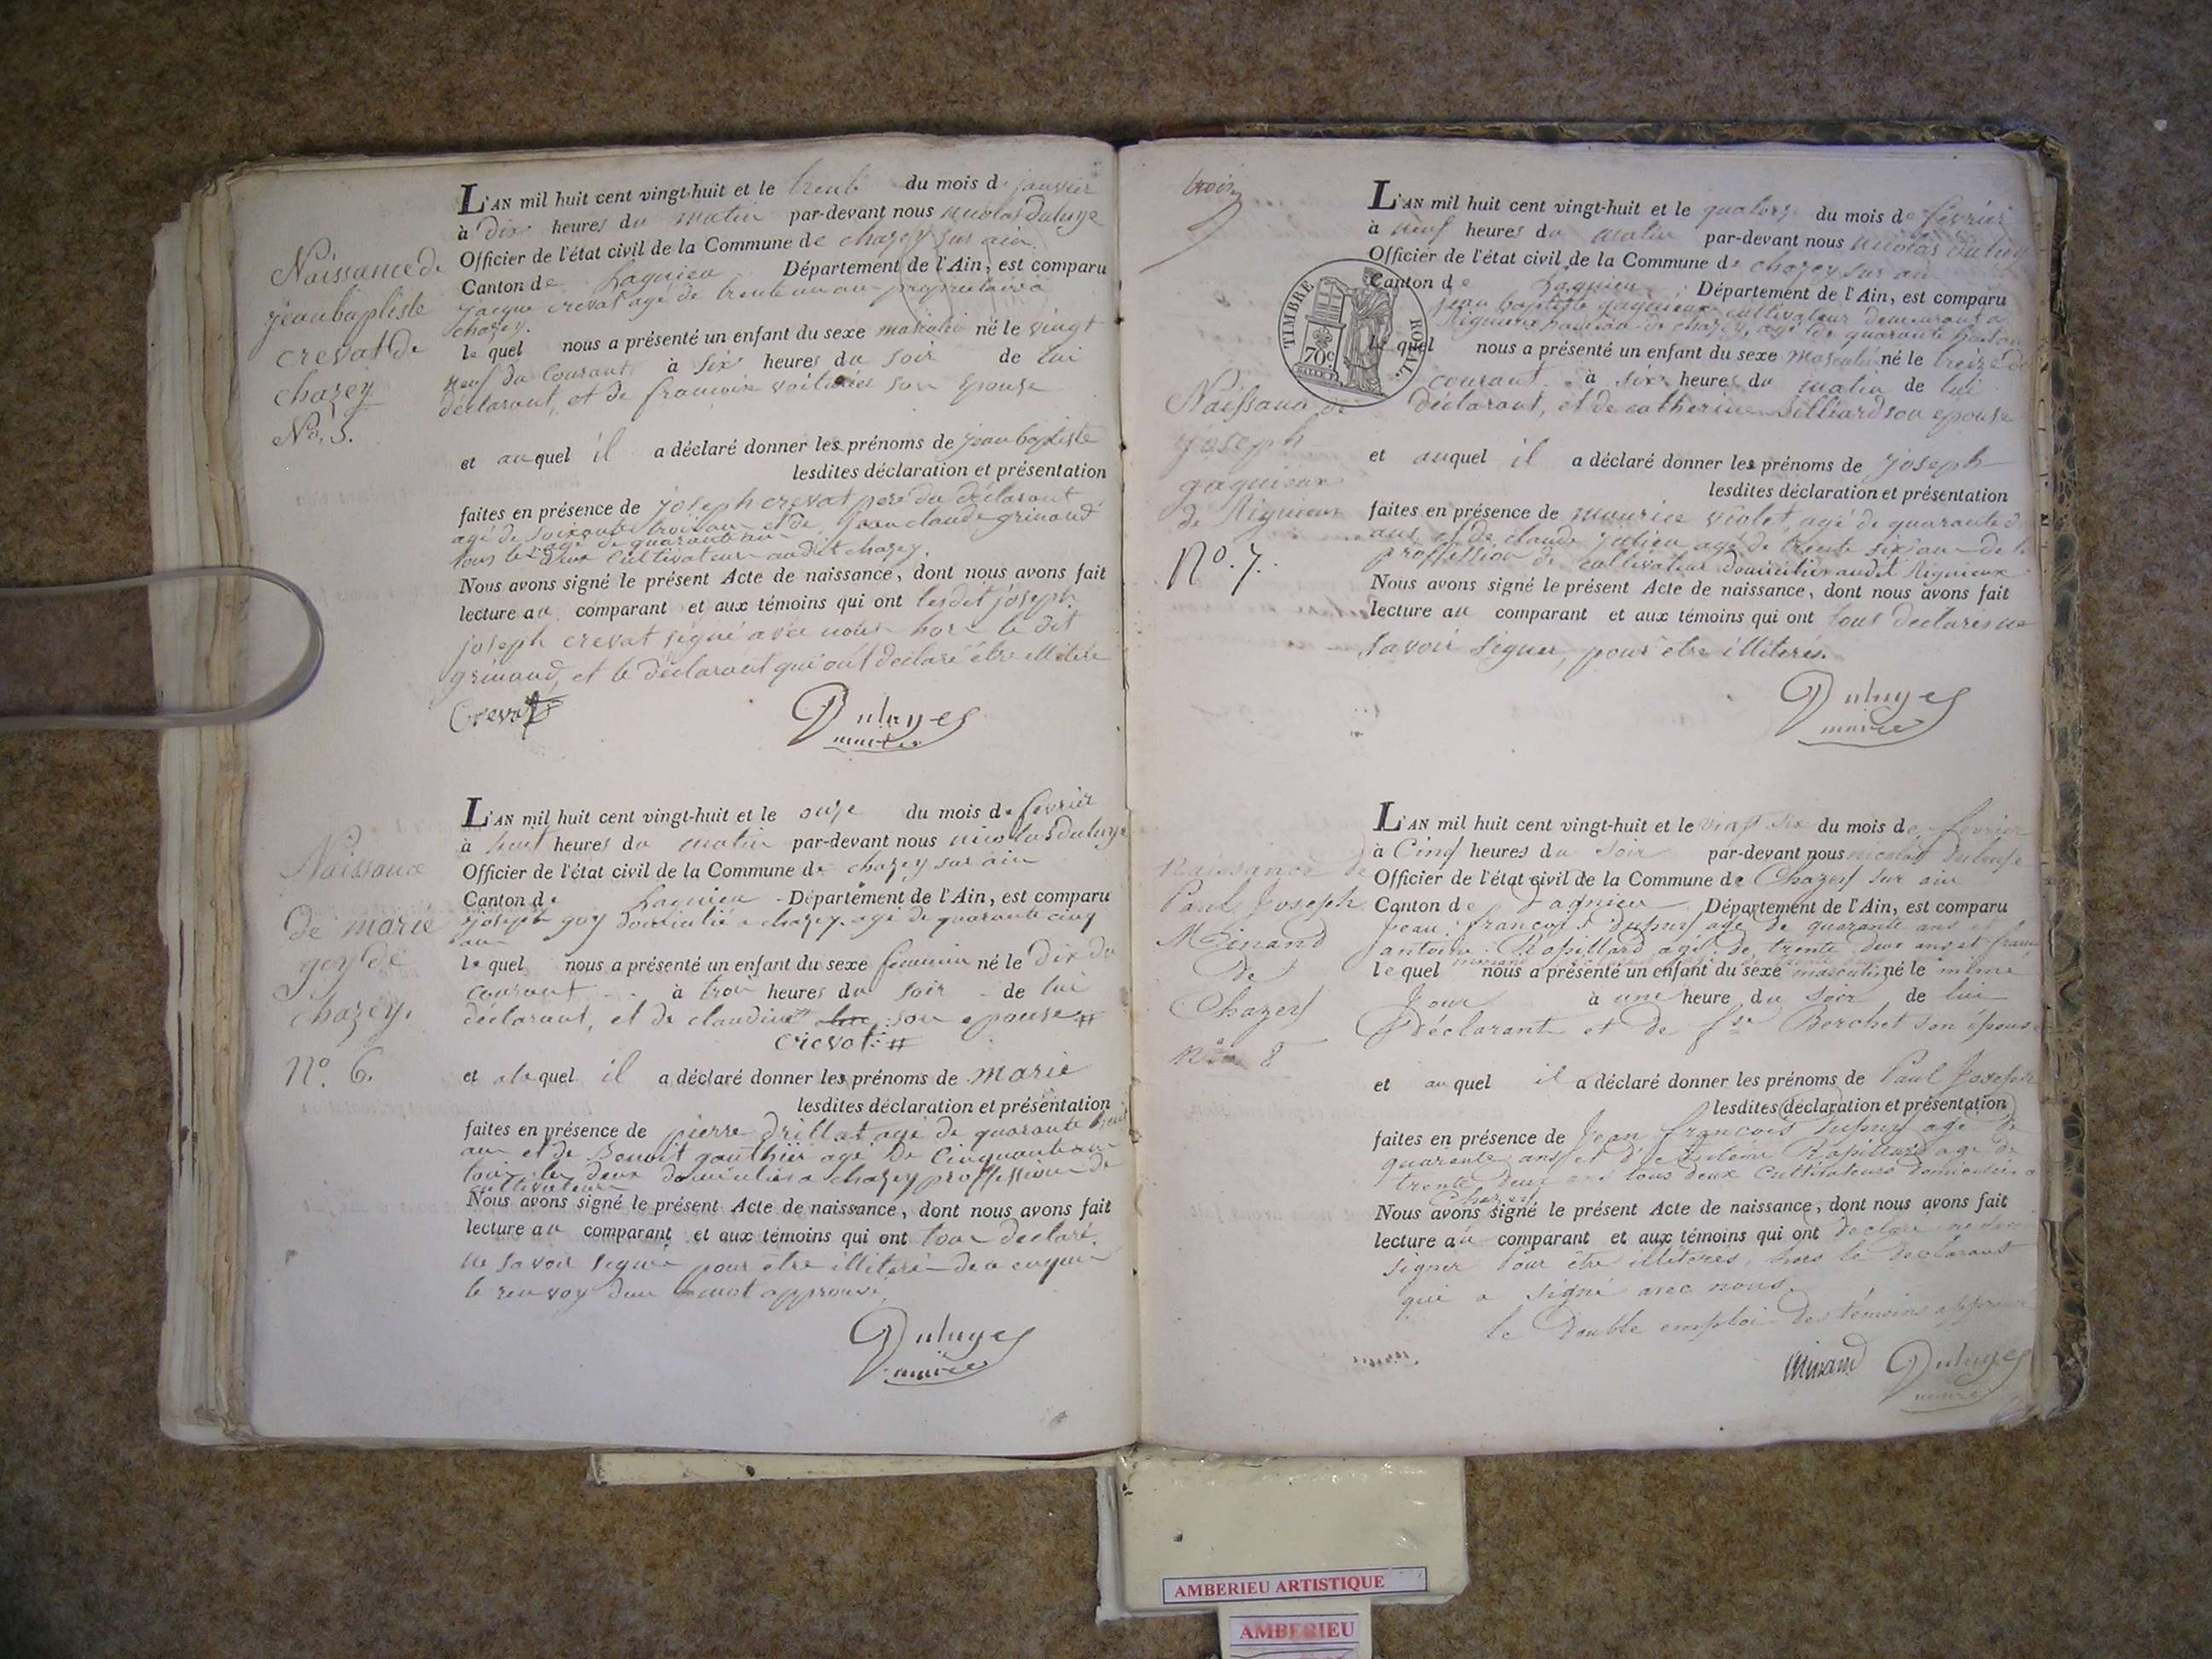 Naissance de
jean baptiste
crevat de
chazey
No. 5.
L'AN mil huit cent vingt-huit et le trente du mois de janvier
à dix heures du matin par-devant nous nicolas duluye
Officier de l'état civil de la Commune de chazey sur ain
Canton de Lagnieu Département de l'Ain, est comparu
jacque crevat agé de trente un an propriétaire a
chazey.
le quel nous a présenté un enfant du sexe masculin né le vingt
neuf du courant à six heures du soir de lui
déclarant, et de francoise son épouse
et auquel il a déclaré donner les prénoms de jean baptiste
lesdites déclaration et présentation
faites en présence de joseph crevat pere du déclarant
agé de soixante trois ans et de jean claude grinand
agé de quarante an
tous les deux cultivateurs audit chazey.
Nous avons signé le présent Acte de naissance, dont nous avons fait
lecture au comparant et aux témoins qui ont lesdit joseph
joseph crevat signé avec nous hors le dit
grinand, et le déclarant qui ont déclaré être illitéré
Crevat Duluyes
maire
Naissance
de marie
goy de
chazey.
No. 6.
L'AN mil huit cent vingt-huit et le onze du mois de fevrier
à huit heures du matin par-devant nous nicolas duluye
Officier de l'état civil de la Commune de chazey sur ain
Canton de Lagnieu Département de l'Ain, est comparu
joseph goy domicilié a chazey. agé de quarante cinq
an
le quel nous a présenté un enfant du sexe féminin né le dix du
courant à trois heures du soir de lui
declarant, et de claudine son epouse #
crevat #
et alaquel il a déclaré donner les prénoms de marie
lesdites déclaration et présentation
faites en présence de pierre drillat agé de quarante huit
an et de Benoit gauthier agé de cinquante an
tous les deux domiciliés a chazey proffession de
cultivateur
Nous avons signé le présent Acte de naissance, dont nous avons fait
lecture au comparant et aux témoins qui ont tous declaré
ne savoir signer pour etre illiteré de ce enquis
le renvoy d'un mot approuvé
Duluyes
maire
trois
TIMBRE ROYAL
70c
Naissance de
joseph
gagnieux
de Rignieux
No. 7.
L'AN mil huit cent vingt-huit et le quatorze du mois de février
à neuf heures du matin par-devant nous nicolas duluye
Officier de l'état civil de la Commune de chazey sur ain
Canton de Lagnieu Département de l'Ain, est comparu
jean baptiste gagnieux cultivateur demeurant a
Rignieux hameau de chazey, agé de quarante
le quel nous a présenté un enfant du sexe masculin né le treize du
courant à six heures du matin de lui
déclarant, et de catherine billiard son epouse
et auquel il a déclaré donner les prénoms de joseph
lesdites déclaration et présentation
faites en présence de maurice violet, agé de quarante
ans, et de claude julien agé de trente six an de la
proffession de cultivateur domiciliés audit Rignieux
Nous avons signé le présent Acte de naissance, dont nous avons fait
lecture au comparant et aux témoins qui ont tous déclarés ne
savoir signer, pour etre illiterés.
Duluyes
maire
Naissance de
Paul Joseph
Minand
De
Chazey
No 8
L'AN mil huit cent vingt-huit et le vingt six du mois de fevrier
à Cinq heures du soir par-devant nous nicolas duluye
Officier de l'état civil de la Commune de Chazey sur ain
Canton de Lagnieu Département de l'Ain, est comparu
Jean francois Dupuy agé de quarante ans et
antoine Rapillard agé de trente deux ans et
le quel nous a présenté un enfant du sexe masculin né le même
Jour à une heure du soir de lui
Déclarant et de fse Berchet son épouse
et auquel il a déclaré donner les prénoms de Paul Joseph
lesdites déclaration et présentation
faites en présence de Jean francois Dupuy agé de
quarante ans et d'antoine Rapillard agé de
trente deux ans tous deux cultivateurs domiciliés a
Chazey
Nous avons signé le présent Acte de naissance, dont nous avons fait
lecture au comparant et aux témoins qui ont declaré ne savoir
signer pour être illiterés, hors le declarant
qui a signé avec nous.
le double emploi des témoins approuvé
Minand Duluyes
maire
AMBERIEU ARTISTIQUE
AMBERIEU